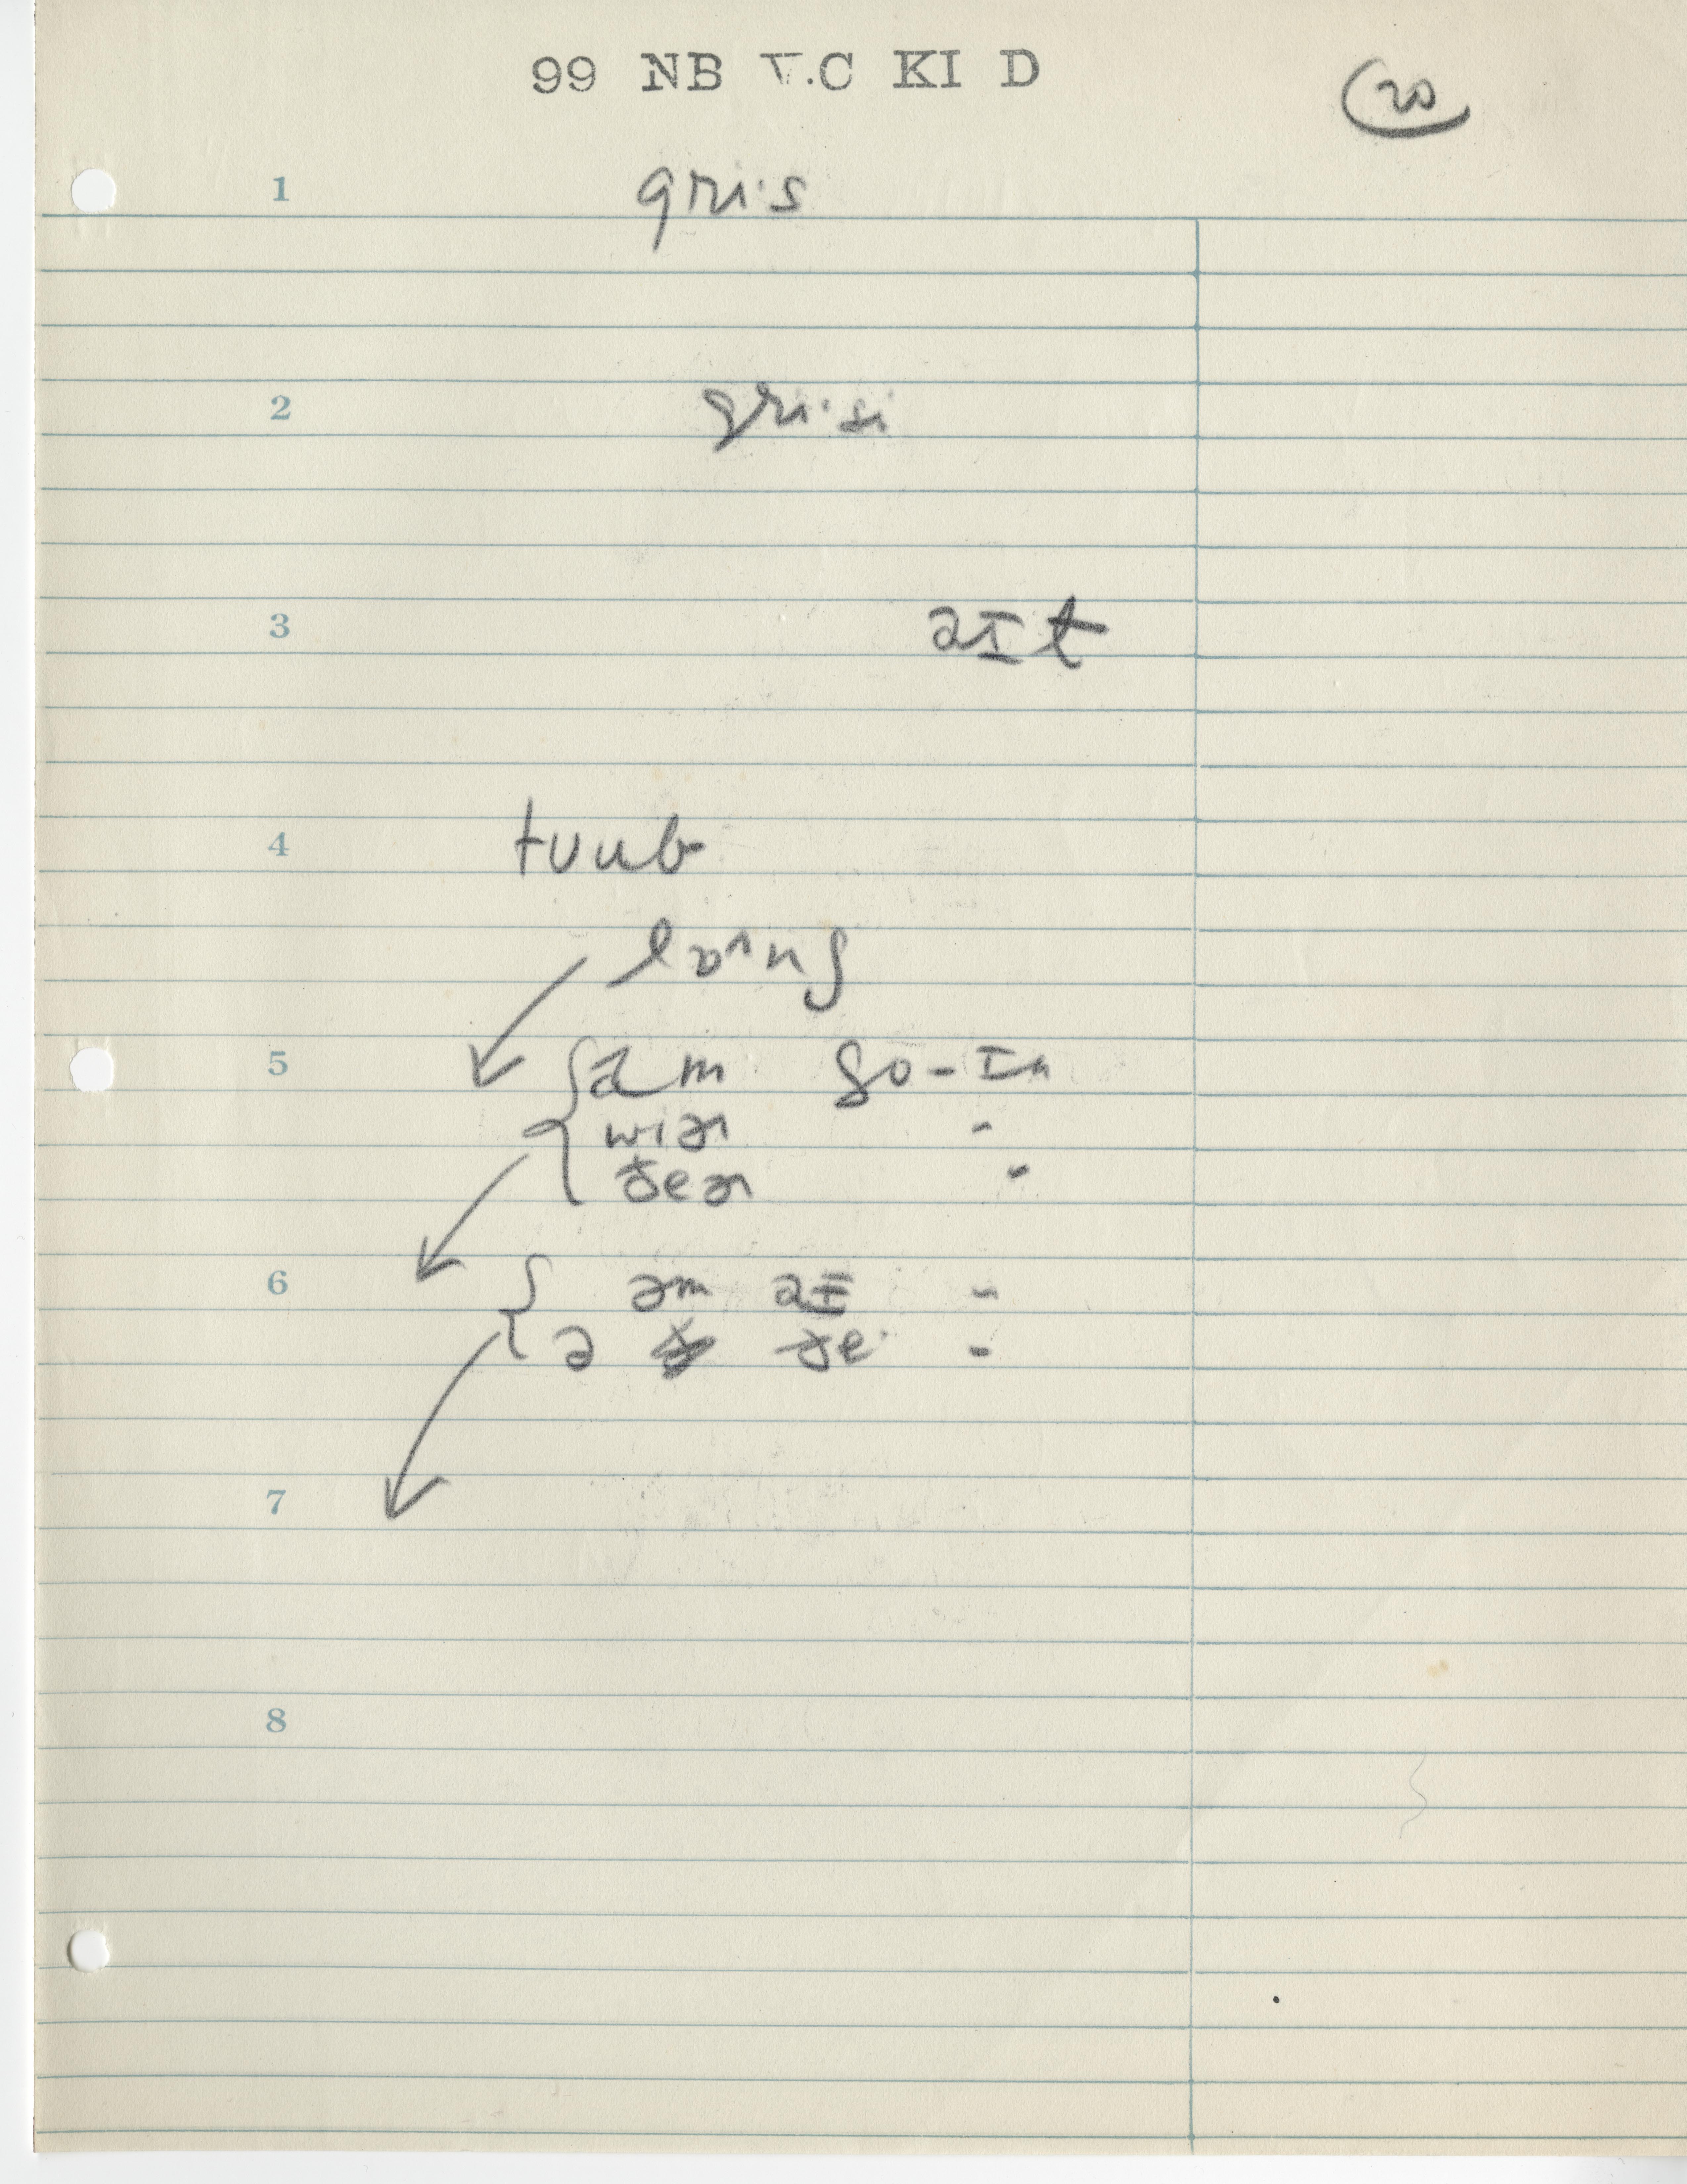 99 NB V.C KI D
20
1 gri·s
2 gri·si
3 aɪt
4 tʊub
5 am go-ɪn
wiər "
ðeər "
6 əm aɪ "
ə ðe· "
7
8